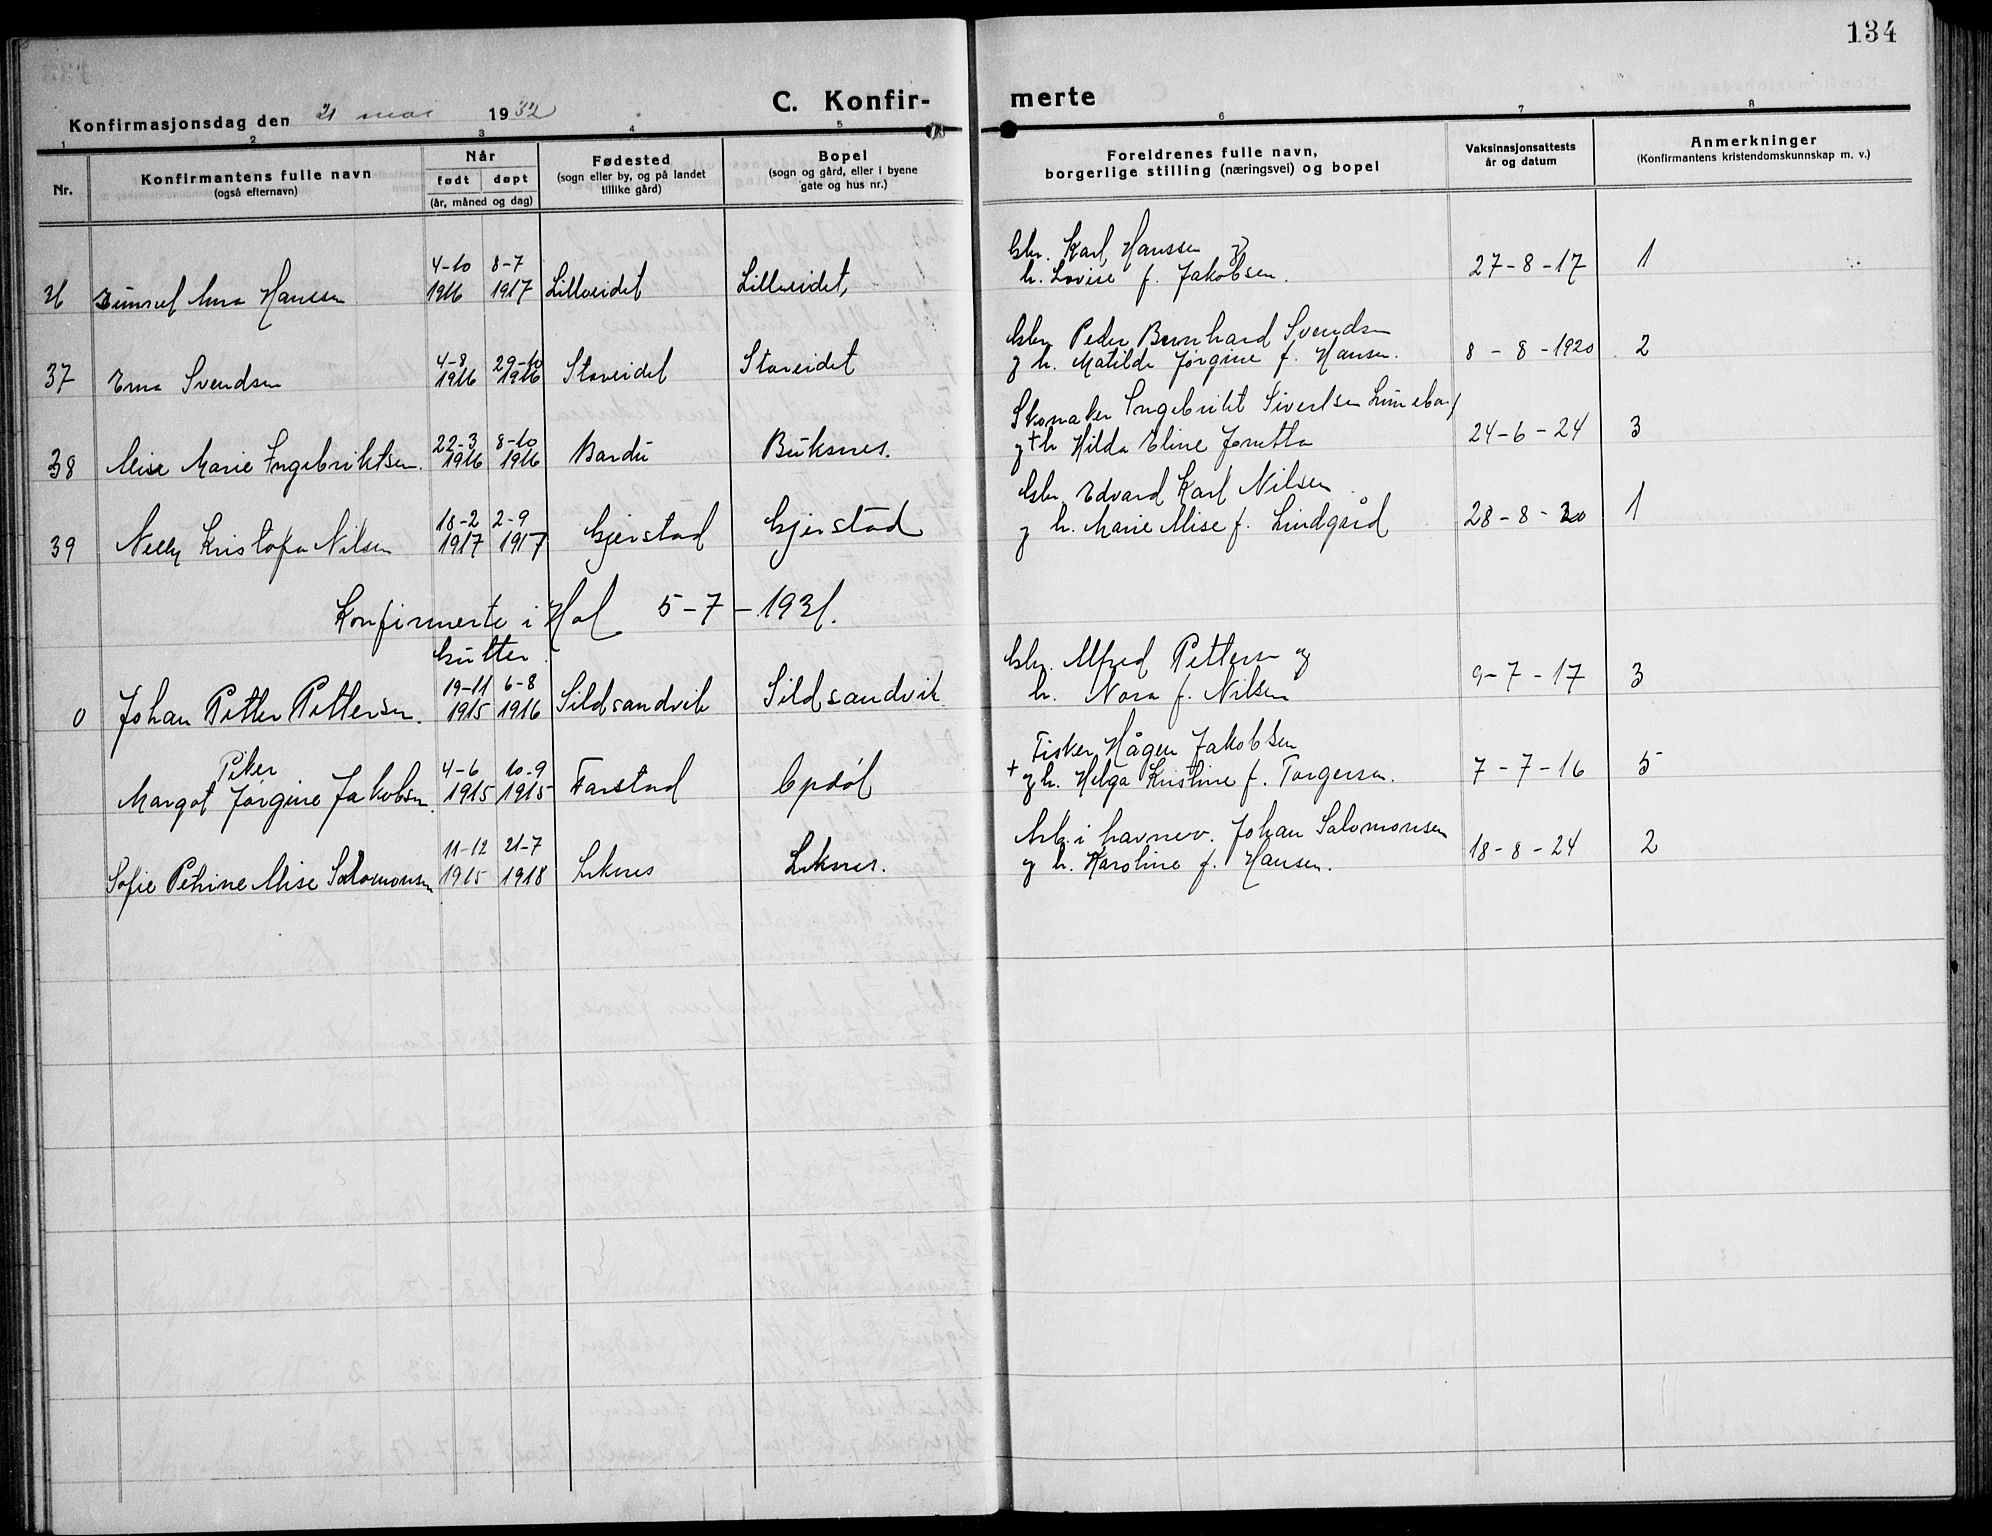 134
C. Konfir-
merte
Konfirmasjonsdag den 21 mai 1932
1 2 3 4 5 6 7 8
Nr.
Konfirmantens fulle navn
(også efternavn)
Når
født døpt
(år, måned og dag)
Fødested
(sogn eller by, og på landet
tillike gård)
Bopel
(sogn og gård, eller i byene
gate og hus nr.)
Foreldrenes fulle navn,
borgerlige stilling (næringsvei) og bopel
Vaksinasjonsattests
år og datum
Anmerkninger
(Konfirmantens kristendomskunnskap m. v.)
4-10 8-7 Gbr. Karl Hanssen og
Anna Hanssen 1916 1917 Lilleeidet Lilleeidet, h. Lovise f. Jakobsen. 27-8-17 1
4-8 29-10 Gbr. Peder Bernhard Svendsen
37 Erna Svendsen 1916 1916 Storeidet Storeidet og h. Matilde Jørgine f. Hansen. 8-8-1920 2
22-3 8-10 Skomaker Ingebrikt Sivertsen
38 Alise Marie Ingebriktsen. 1916 1916 Bardu Buksnes. og + h Hilda Eline Jonetta 24-6-24 3
18-2 2-9 Gbr. Edvard Karl Nilsen
39 Nelly Kristofa Nilsen 1917 1917 Gjerstad Gjerstad og h. Marie Alise f. Lindgård 28-8-20 1
Konfirmerte i Hol 5-7-1931.
Gutter.
19-11 6-8 Gbr. Alfred Pettersen og
0 Johan Petter Pettersen. 1915 1916 Sildsandvik Sildsandvik h. Nora f. Nilsen 9-7-17 3
Piker 4-6 10-9 + Fisker Hågen Jakobsen
Margot Jørgine Jakobsen 1915 1915 Farstad Opdøl og h. Helga Kristine f. Torgersen. 7-7-16 5
11-12 21-7 Arb. i havnev. Johan Salomonsen
Sofie Petrine Alise Salomonsen 1915 1918 Leknes Leknes. og h. Karoline f. Hansen. 18-8-24 2